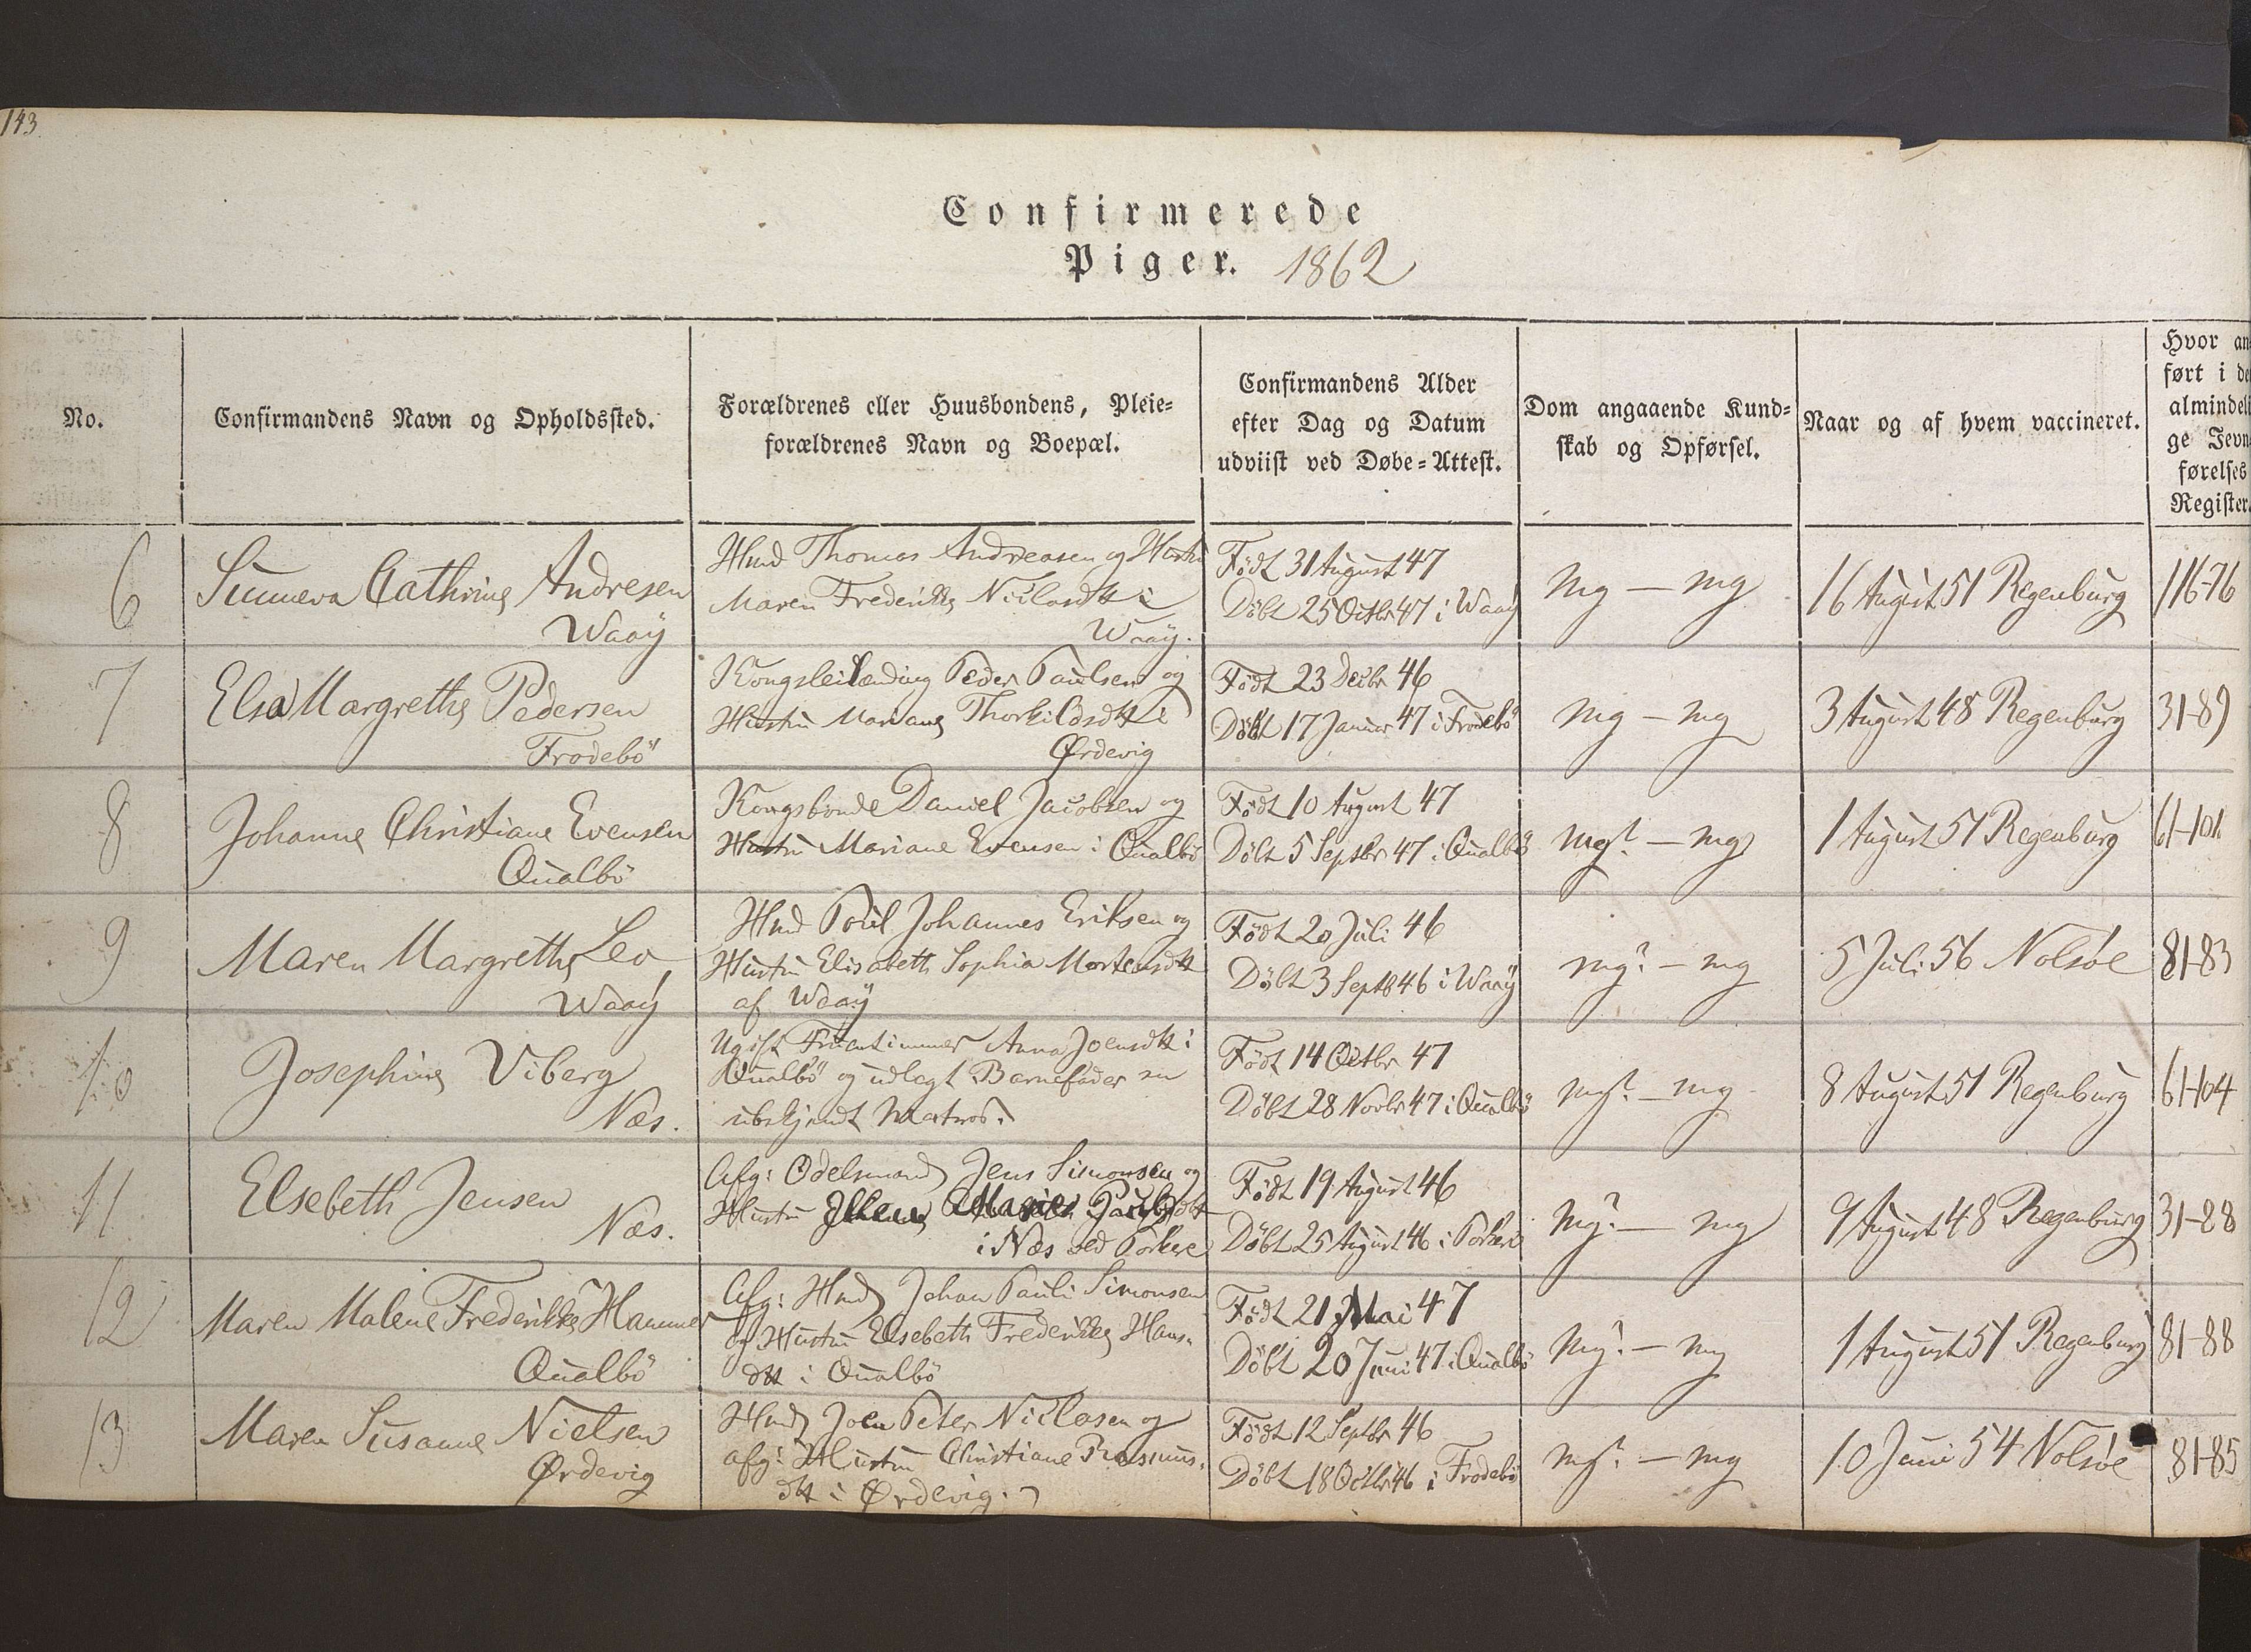 143.
Confirmerede
Piger. 1862
No.
Confirmandens Navn og Opholdssted.
Forældrenes eller Huusbondens, Pleie=
forældrenes Navn og Boepæl.
Confirmandens Alder
efter Dag og Datum
udviist ved Døbe=Attest.
Dom angaaende Kund=
skab og Opførsel.
Naar og af hvem vaccineret.
Hvor an
ført i de
almindeli
ge Jevn
førelses
Register.
6
Sunneva Cathrine Andresen
Waaÿ
Hmd Thomas Andreasen og Hustru
Maren Frederikke Nielsdtt i
Waaÿ.
Födt 31 August 47
Döbt 25 Octbr 47 i Waaÿ
mg — mg
16 August 51 Regenburg
116-76
7
Elsa Margrethe Pedersen
Frodebö
Kongsleilænding Peder Paulsen og
Hustru Mariane Thorkildsdtt i
Ørdevig
Födt 23 Decbr 46
Döbt 17 Januar 47 i Frodebö
mg — mg
3 August 48 Regenburg
31-89
8
Johanne Christiane Evensen
Qualbö
Kongsbonde Daniel Jacobsen og
Hustru Mariane Evensen i Qualbö
Födt 10 August 47
Döbt 5 Septbr 47 i Qualbö
mg? — mg
1 August 51 Regenburg
61-101
9
Maren Margrethe Leo
Waaÿ
Hmd Poul Johannes Eriksen og
Hustru Elisabeth Sophia Mortensdtt
af Waaÿ
Födt 20 Juli 46
Döbt 3 Septb 46 i Waaÿ
mg? — mg
5 Juli 56 Nolsöe
81-83
10
Josephine Viberg
Næs.
Ugift Fruentimmer Anna Joensdtt i
Qualbö og udlagt Barnefader en
ubekjendt Matros.
Födt 14 Octbr 47
Döbt 28 Novbr 47 i Qualbö
mg? — mg
8 August 51 Regenburg
61-104
11
Elsebeth Jensen
Næs.
Afg: Odelsmand Jens Simonsen og
Hustru Ellen Marie
i Næs ved Porkere
Födt 19 August 46
Döbt 25 August 46 i Porkere
mg? — mg
9 August 48 Regenburg
31-28
12
Maren Malene Frederikke Hammer
Qualbö
Afg: Hmd Johan Pauli Simonsen
og Hustru Elsebeth Frederikke Hans-
dtt i Qualbö
Födt 21 Mai 47
Döbt 20 Juni 47 i Qualbö
mg? — mg
1 August 51 Regenburg
81-88
13
Maren Susanne Nielsen
Ørdevig
Hmd Joen Peter Nielasen og
afg: Hustru Christiane Rasmus-
dtt i Ørdevig.
Födt 12 Septbr 46
Döbt 18 Octbr 46 i Frodebö
mg? — mg
10 Juni 54 Nolsöe
81-85